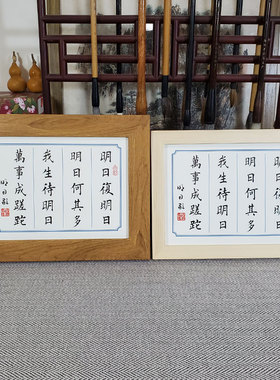 明日復明日
明日何其多
我生待明日
萬事成蹉跎
明日歌
明日復明日
明日何其多
我生待明日
萬事成蹉跎
明日歌